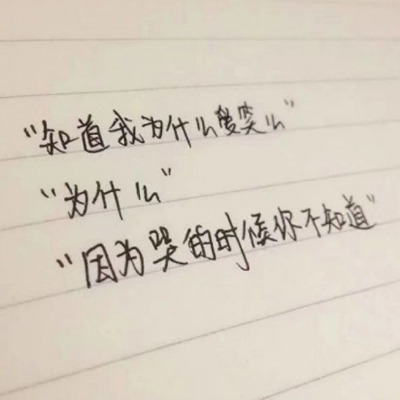 “知道我为什么爱笑么”
“为什么”
“因为哭的时候你不知道”